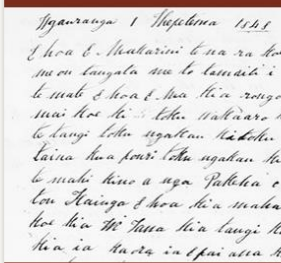 Ngauranga 1 Hepetema 1848
E hoa E Makarini tena ra koe
me on tangata me to tamaiti i
te mate E hoa E Ma kia rongo
mai koe ki toku wakaaro
te tangi toku ngakau ki toku
taina kua pouri toku ngakau
te mahi kino a nga Pakeha
tou Kainga E hoa kia maha
koe kia Te Tana kia tangi
kia ia kaore ia e pai ana